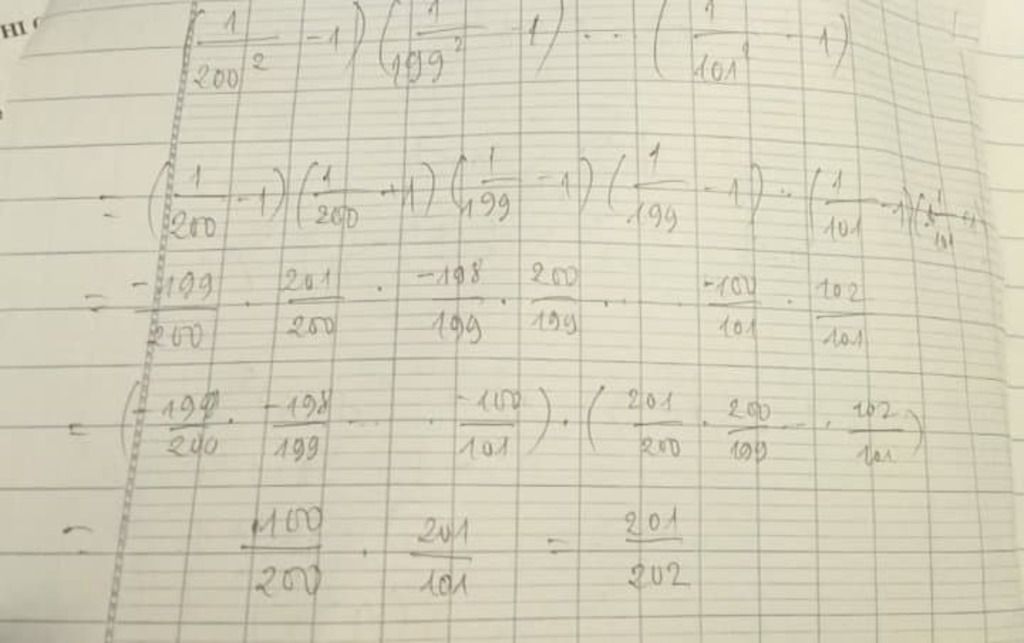 HI
(1/200² - 1) (1/199² - 1) ... (1/101² - 1)
= (1/200 - 1) (1/200 + 1) (1/199 - 1) (1/199 - 1) ... (1/101 - 1) (1/101 + 1)
= -199/200 · 201/200 · -198/199 · 200/199 ... -100/101 · 102/101
= (-199/200 · -198/199 ... -100/101) · (201/200 · 200/199 ... · 102/101)
= 100/200 · 201/101 = 201/202